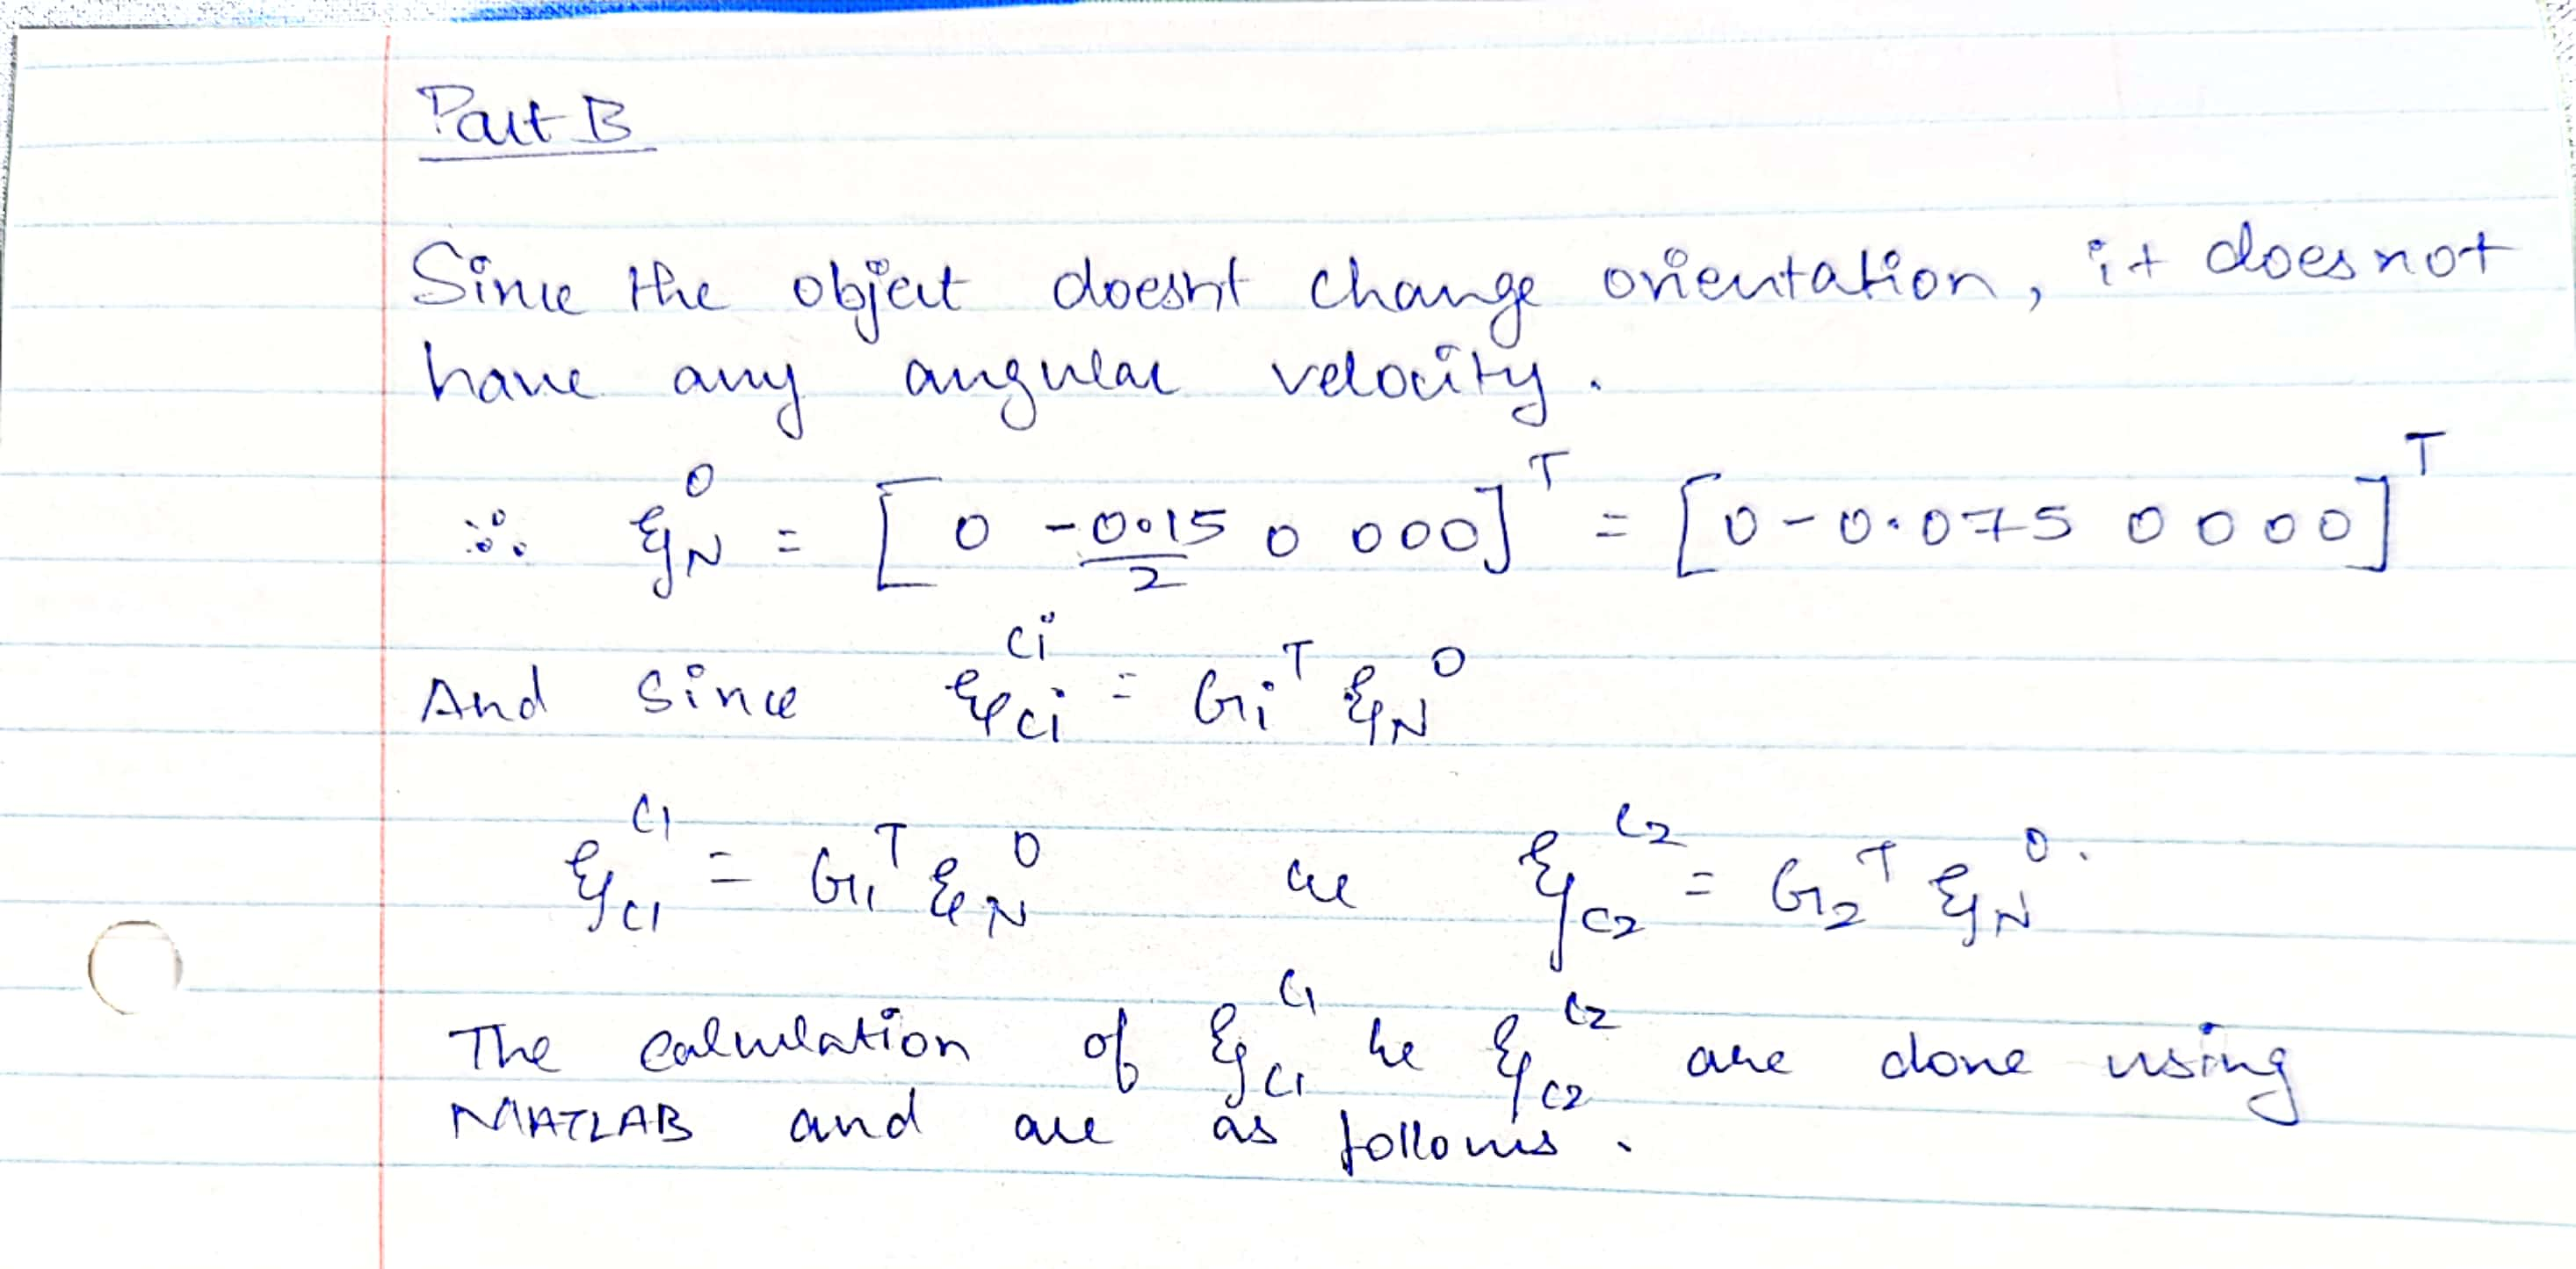 Part B
Since the object doesn't change orientation, it does not
have any angular velocity.
∴ ξ_N^O = [0 -0.15/2 0 000]^T = [0 -0.075 0 0 0 0]^T
And since ξ_{Ci}^{Ci} = G_i^T ξ_N^O
ξ_{C1}^{C1} = G_1^T ξ_N^O & ξ_{C2}^{C2} = G_2^T ξ_N^O.
The calculation of ξ_{C1}^{C1} & ξ_{C2}^{C2} are done using
MATLAB and are as follows.